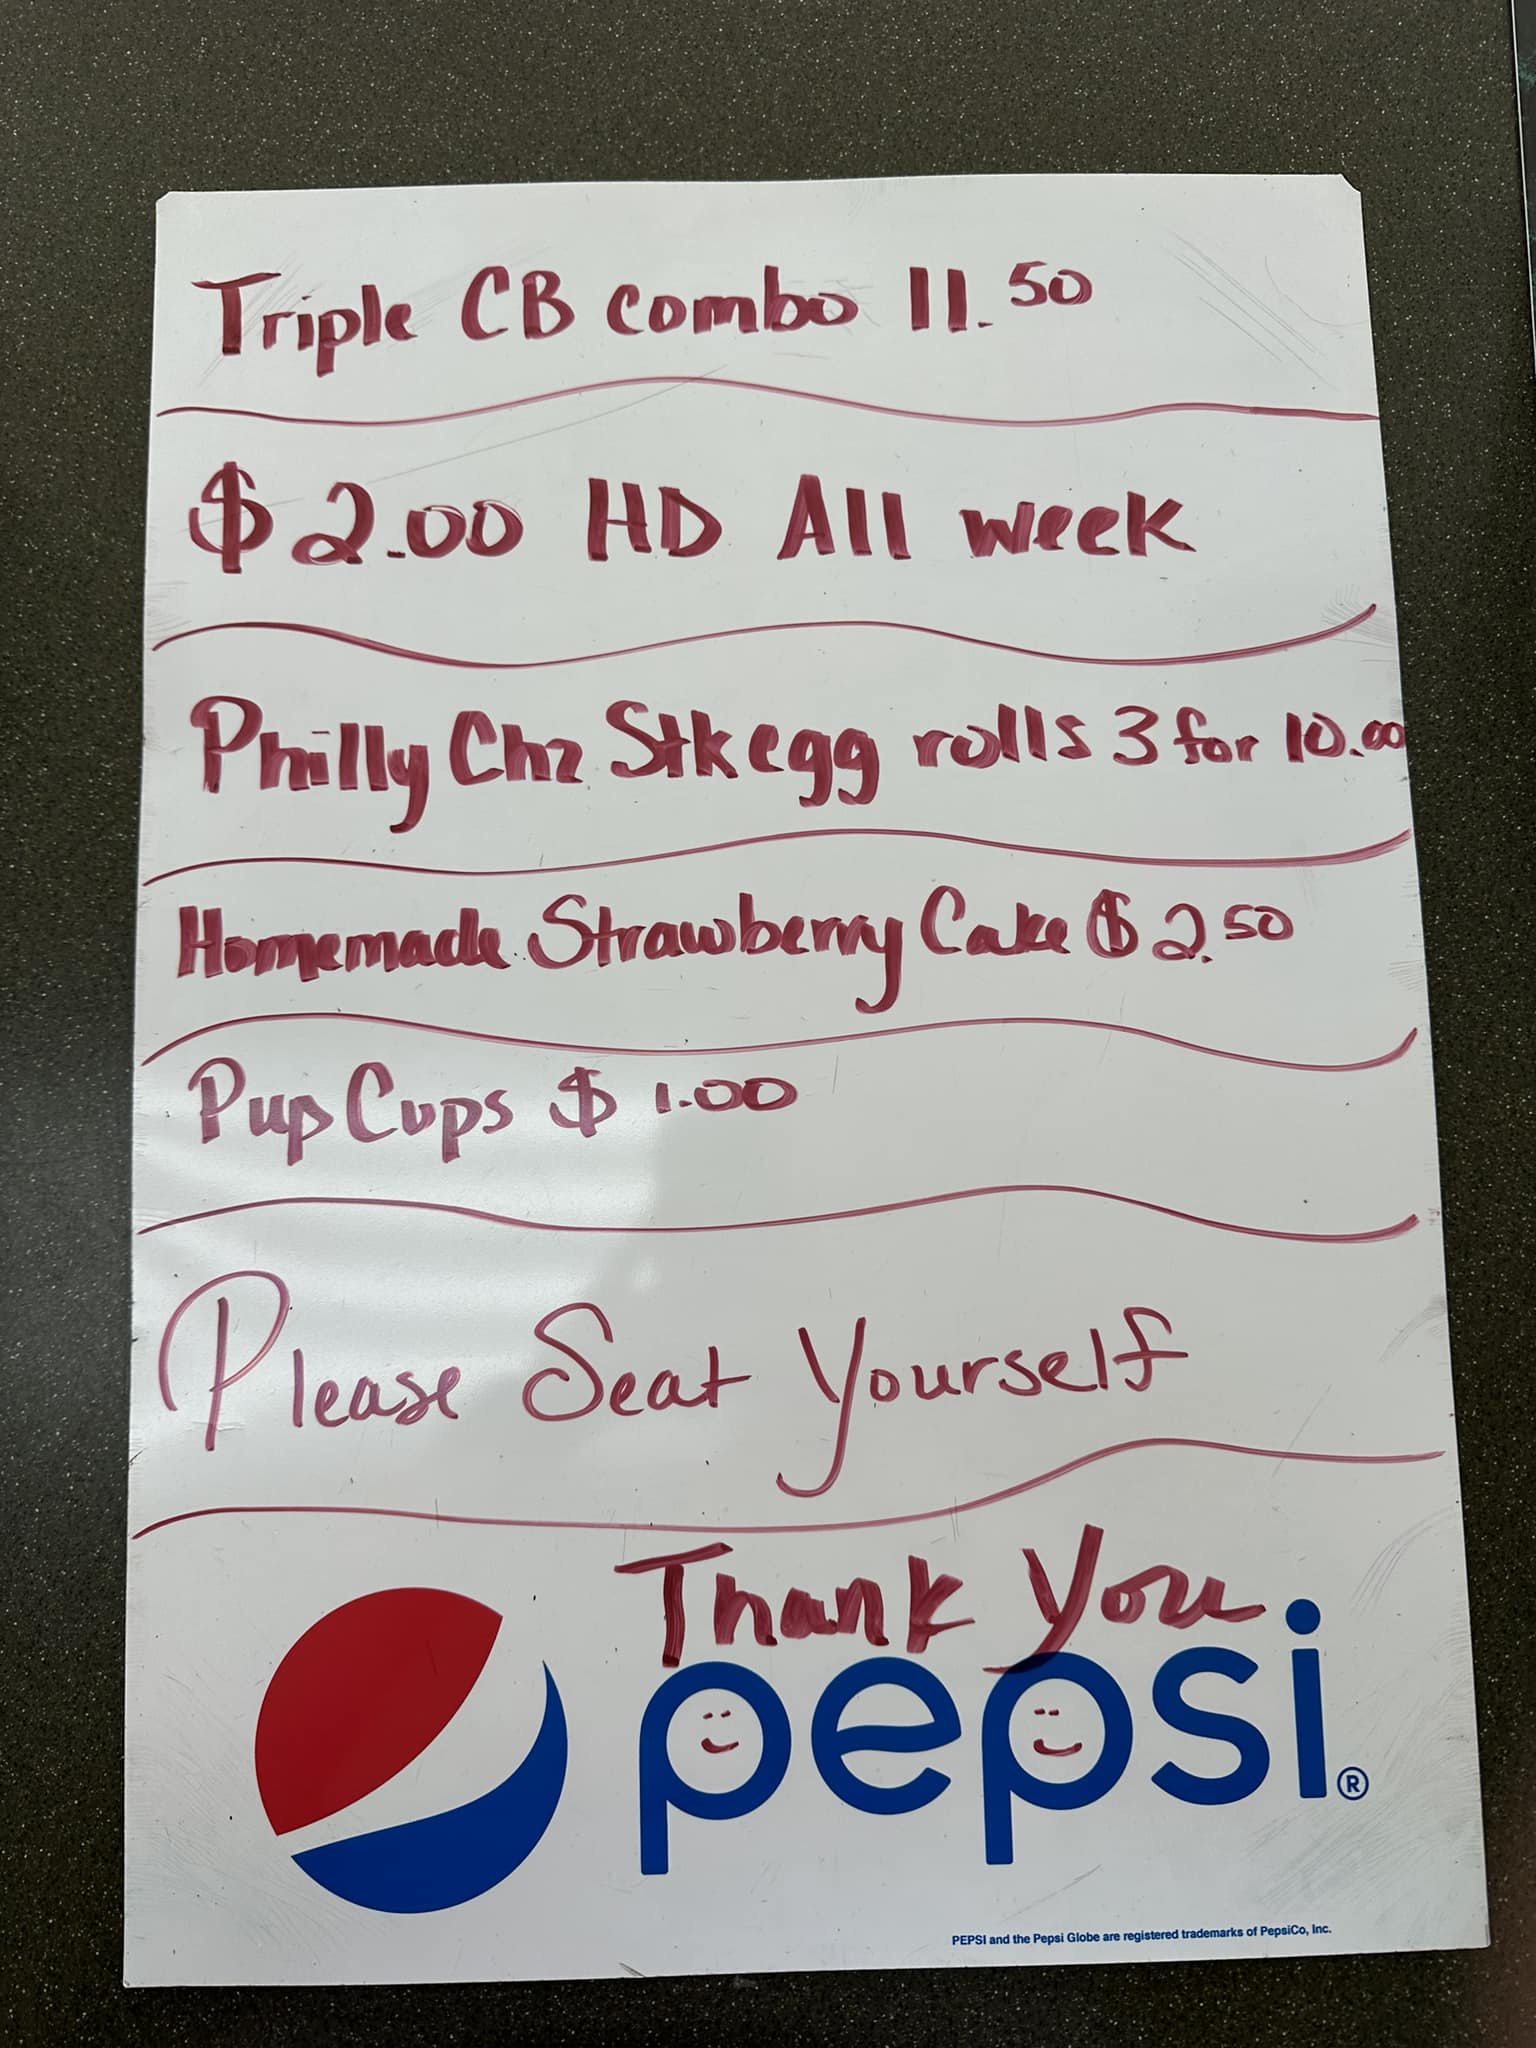 Triple CB combo 11.50
$2.00 HD All week
Philly Chz Stk egg rolls 3 for 10.00
Homemade Strawberry Cake $2.50
Pup Cups $1.00
Please Seat Yourself
Thank You
pepsi®
PEPSI and the Pepsi Globe are registered trademarks of PepsiCo, Inc.